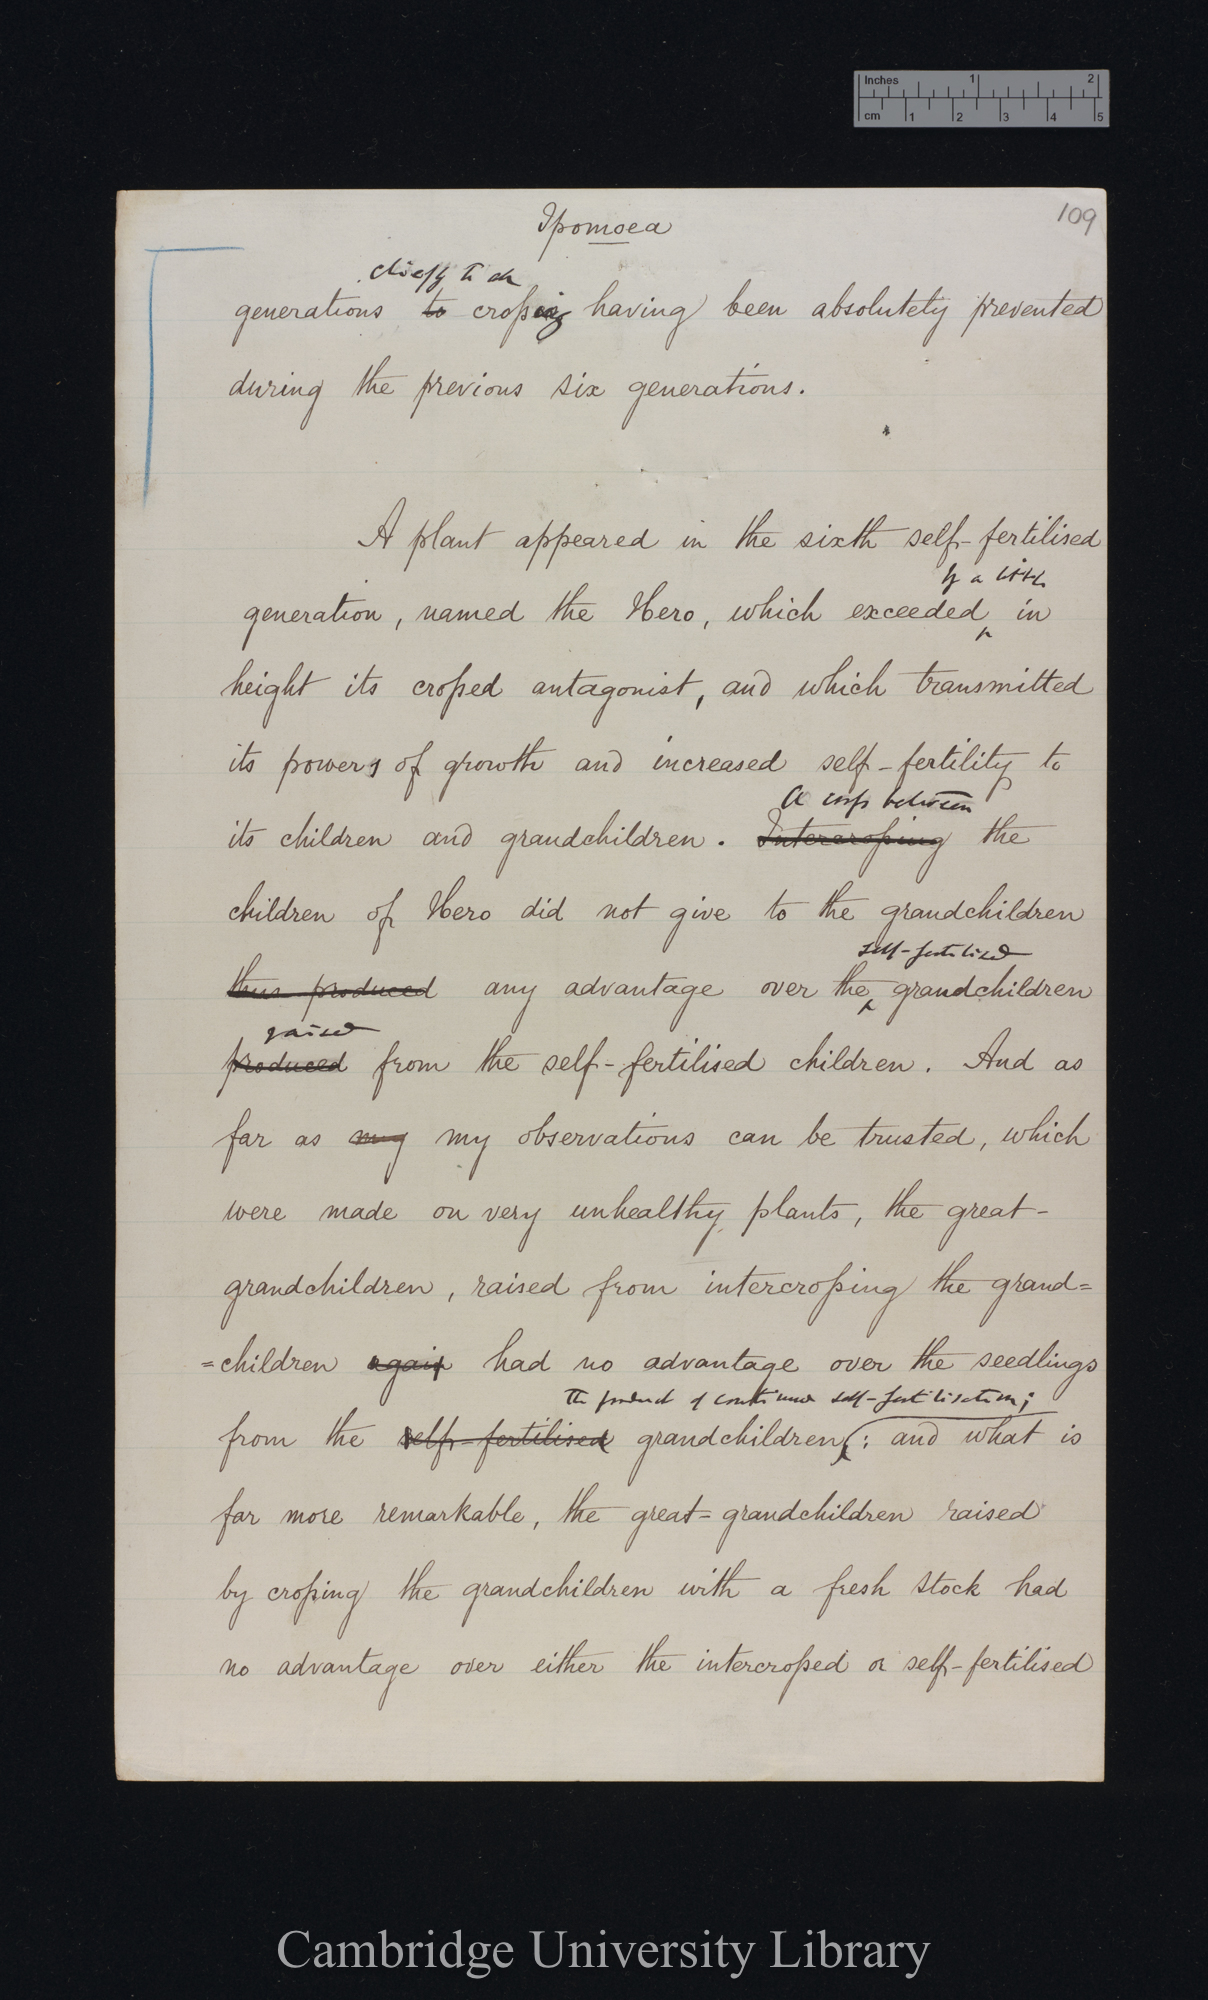 Inches 1 2
cm 1 2 3 4 5
109
Ipomoea
chiefly to a
generations to crossing having been absolutely prevented
during the previous six generations.
A plant appeared in the sixth self-fertilised
by a little
generation, named the Hero, which exceeded in
height its crossed antagonist, and which transmitted
its powers of growth and increased self-fertility to
A cross between
its children and grandchildren. Intercrossing the
children of Hero did not give to the grandchildren
self-fertilised
thus produced any advantage over the grandchildren
raised
produced from the self-fertilised children. And as
far as my my observations can be trusted, which
were made on very unhealthy plants, the great-
grandchildren, raised from intercrossing the grand=
=children again had no advantage over the seedlings
the product of continued self-fertilisation;
from the self-fertilised grandchildren; and what is
far more remarkable, the great=grandchildren raised
by crossing the grandchildren with a fresh stock had
no advantage over either the intercrossed or self-fertilised
Cambridge University Library